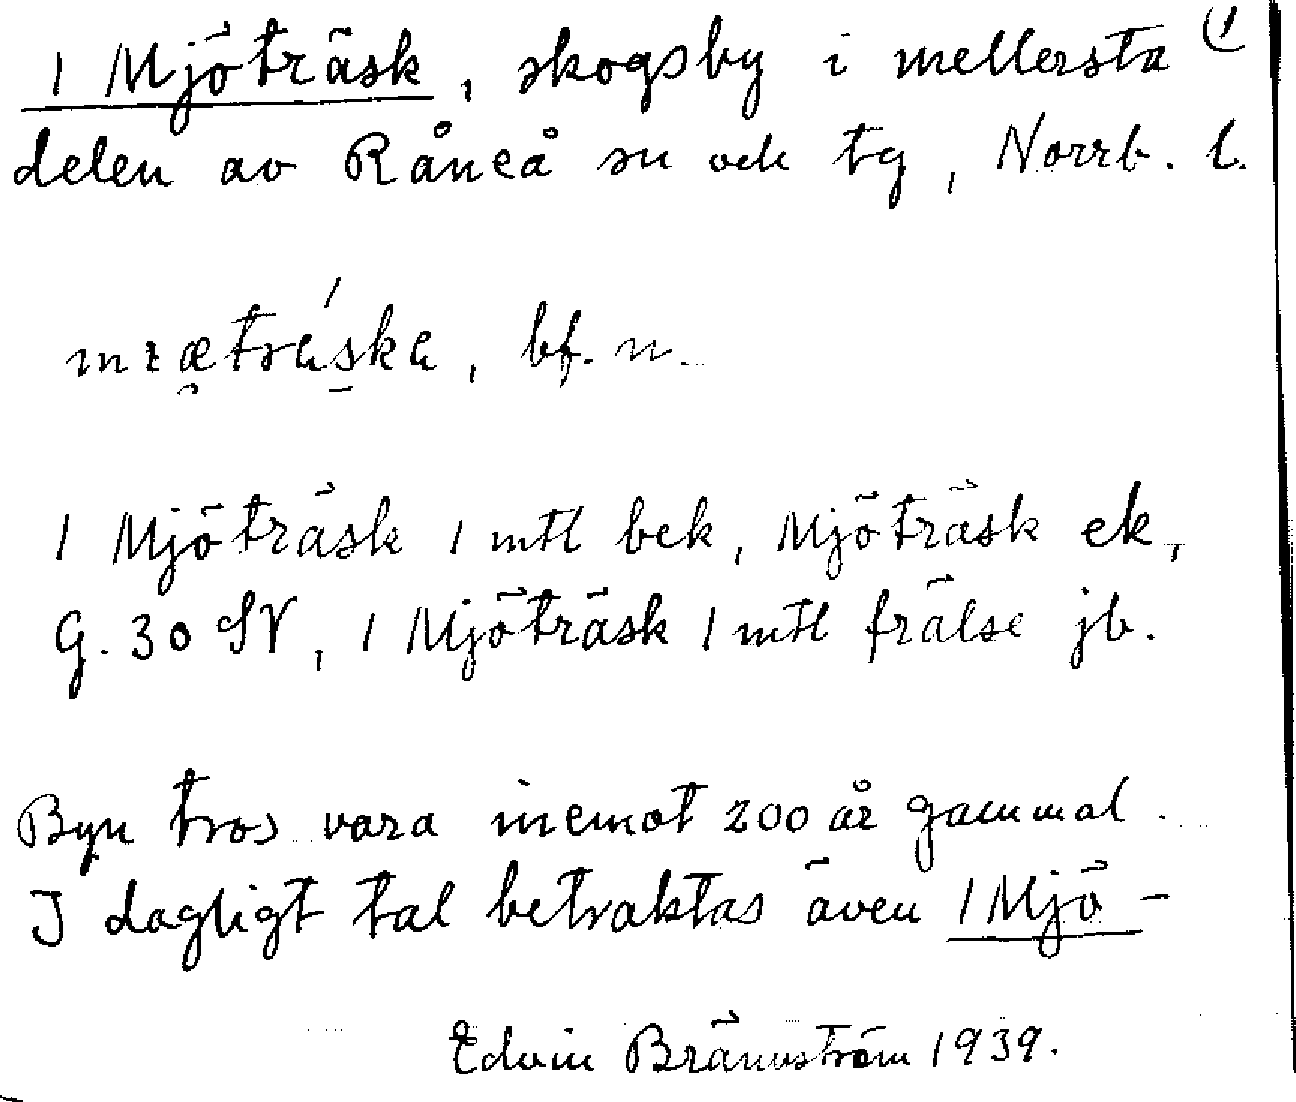 1 Mjöträsk, skogsby i mellersta (1
delen av Råneå sn och tg, Norrb. l.
bf. n.
1 Mjöträsk 1 mtl bek, Mjöträsk ek,
G. 30 SV, 1 Mjöträsk 1 mtl frälse jb.
Byn tros vara inemot 200 år gammal.
I dagligt tal betraktas även 1 Mjö-
Edvin Brännström 1939.